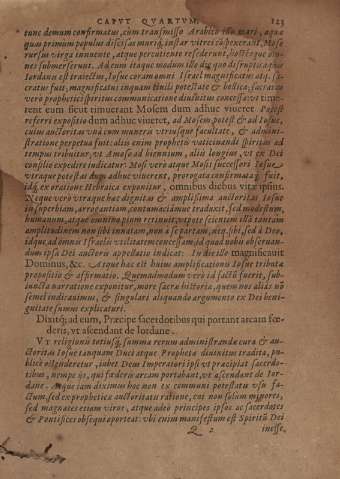 CAPVT QVARTVM. 123
tunc demum confirmatus, cum transmisso Arabico illo mari, aqua
quas primum populus discissas muriq; instar vitrei suspexerant, Mose
rursus virga innuente, atque percutiente resederunt, hostesque omnes
submerserunt. Ad eum itaque modum illo die quo disruptis aquis
Iordanis est traiectus, Iosue coram omni Israel magnificatus atq; sacratus
fuit, magnificatus inquam civili potestate & bellica: sacratus
vero propheticis spiritus communicatione
rent eum sicut timuerant Mosem dum adhuc viueret. Potest
referri expositio dum adhuc viueret, ad Mosem potest & ad Iosue,
cuius auctoritas vnà cum munere vtriusque facultate, & administratione
perpetua fuit: alis enim propheta vaticinandi spiritus ad
tempus tribuitur, vt Amos ad biennium, alis longius, vt ex Dei
consilio expedire iudicatur: Mosi vero atque Mosi successori Iosue
vtraque potestas dum adhuc viuerent, prorogata confirmataq; fuit,
idq; ex oratione Hebraica exponitur, omnibus diebus vitæ ipsius.
Neque vero vtraque hac dignitas & amplissima auctoritas Iosue
in superbiam, arrogantiam, contumaciamue traduxit, sed modestum,
humanum, atque omnino pium retinuit, vtpote scientem illā tantam
amplitudinem non sibi innatam, non a se partam, neq; sibi, sed à Deo,
idque, ad omnis Israelis vtilitatem concessam, id quod nobis obseruandum
ipsa Dei auctoris appellatio indicat: In die illo magnificauit
Dominus, &c. Atque hæc est huius amplificationis Iosue tributæ
propositio & affirmatio. Quemadmodum verò id factū fuerit, subiuncta
narratione exponitur, more sacræ historiæ, quem nos aliàs nō
semel indicauimus, & singulari aliquando argumento ex Dei benignitate
sumus explicaturi.
Dixitq; ad eum, Præcipe sacerdotibus qui portant arcam fœderis,
vt ascendant de Iordane.
VT religionis totiusq; summæ rerum administrandæ cura & auctoritas
Iosue tanquam Duci atque Prophetæ diuinitus tradita, publicè
ostenderetur, iubet Deus Imperatori ipsi vt præcipiat sacerdotibus,
nempe iis, qui fœderis arcam portabant, vt ascendant de Iordane.
Atque iam diximus hoc non ex communi potestatis vsu factum,
sed ex prophetica auctoritatis ratione, cui non solum minores,
sed magnates etiam viros, atque adeò principes ipsos ac sacerdotes
& Pontifices obsequi oporteat: vbi enim manifestum est Spiritū Dei
Q 2 inesse,